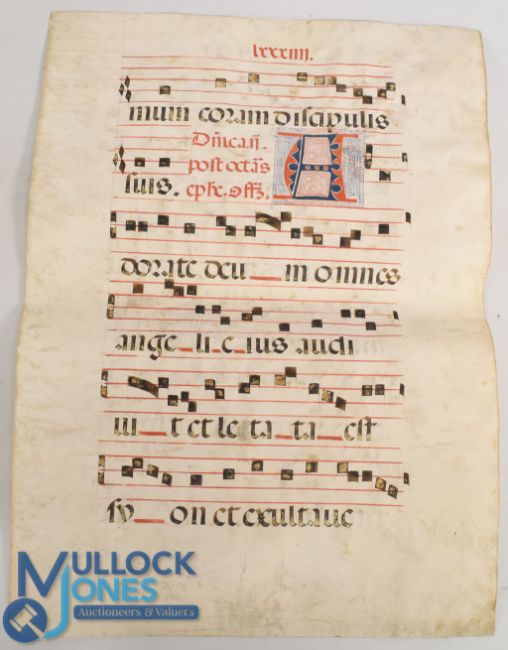 lxxxiiij.
mum coram discipulis
suis.
Dn̄ica.ij.
post octa᷒s
eph̄e.offꝫ.
A
dorate deu in omnes
ange li e ius audi
ui t et le ta ta est
sy on et exultaue
MULLOCK
JONES
Auctioneers & Valuers